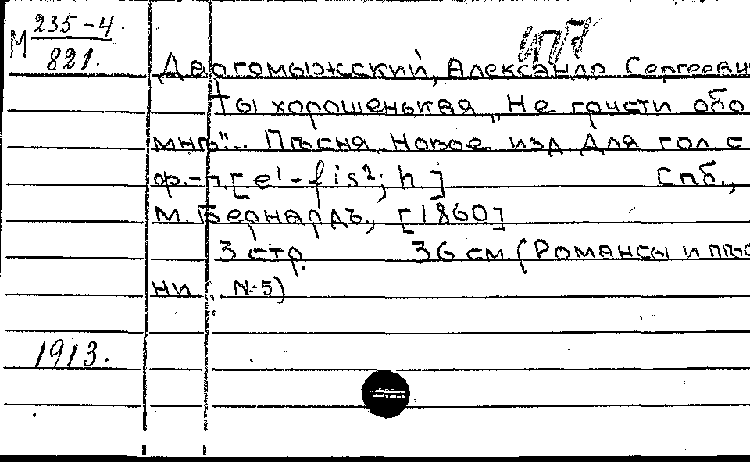 М 235-4
821.
Даргомыжский, Александр Сергееви
Ты хорошенькая „Не грусти обо
мнѣ"... Пѣсня. Новое изд. Для гол. с
ф.-п. [e¹-fis²; h] Спб.,
М. Бернардъ, [1860]
3 стр. 36 см (Романсы и пѣс
ни. N 5)
1913.